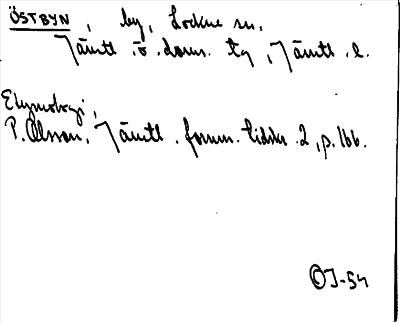 ÖSTBYN, by, Lockne sn,
Jämtl. ö. doms. tg, Jämtl. l.
Etymologi,
P. Olsson, Jämtl. fornm. tidskr. 2, p. 166.
OJ-54